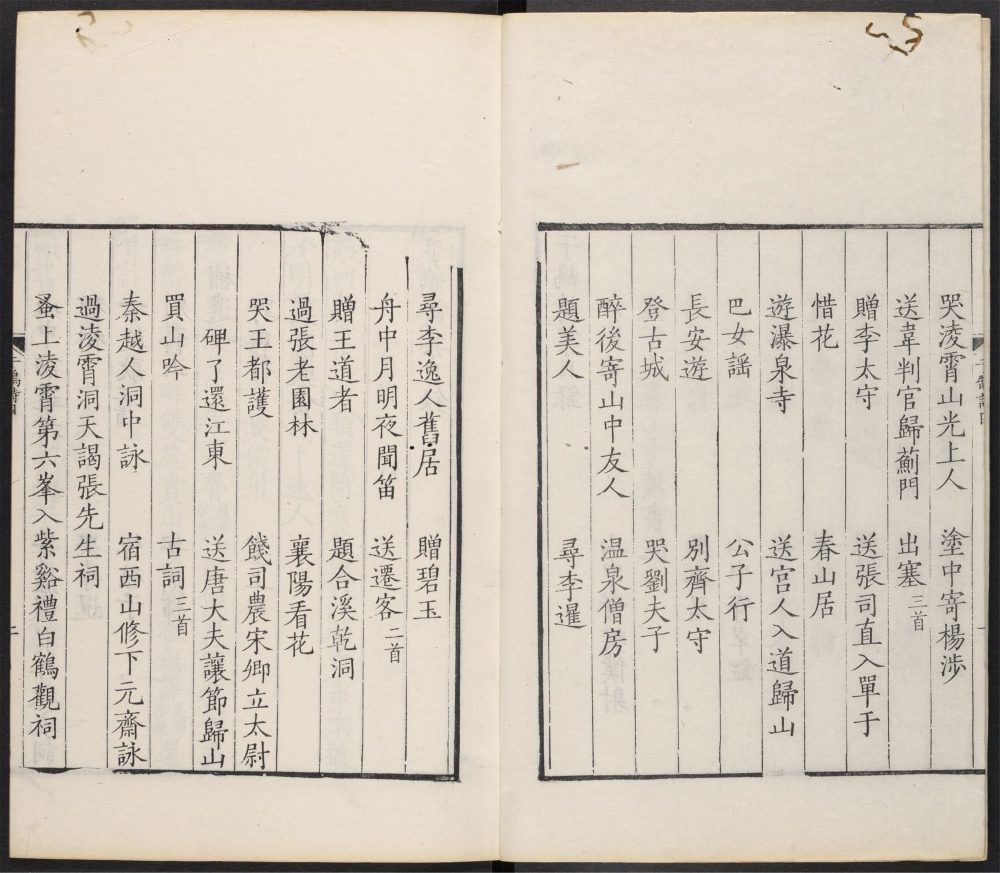 哭淩霄山光上人 塗中寄楊涉
送韋判官歸薊門 出塞三首
贈李太守 送張司直入單于
惜花 春山居
遊瀑泉寺 送宮人入道歸山
巴女謠 公子行
長安遊 別齊太守
登古城 哭劉夫子
醉後寄山中友人 溫泉僧房
題美人 尋李暹
尋李逸人舊居 贈碧玉
舟中月明夜聞笛 送遷客二首
贈王道者 題合溪乾洞
過張老園林 襄陽看花
哭王都護 餞司農宋卿立太尉
碑了還江東 送唐大夫讓節歸山
買山吟 古詞三首
秦越人洞中詠 宿西山修下元齋詠
過淩霄洞天謁張先生祠
蚤上淩霄第六峯入紫谿禮白鶴觀祠